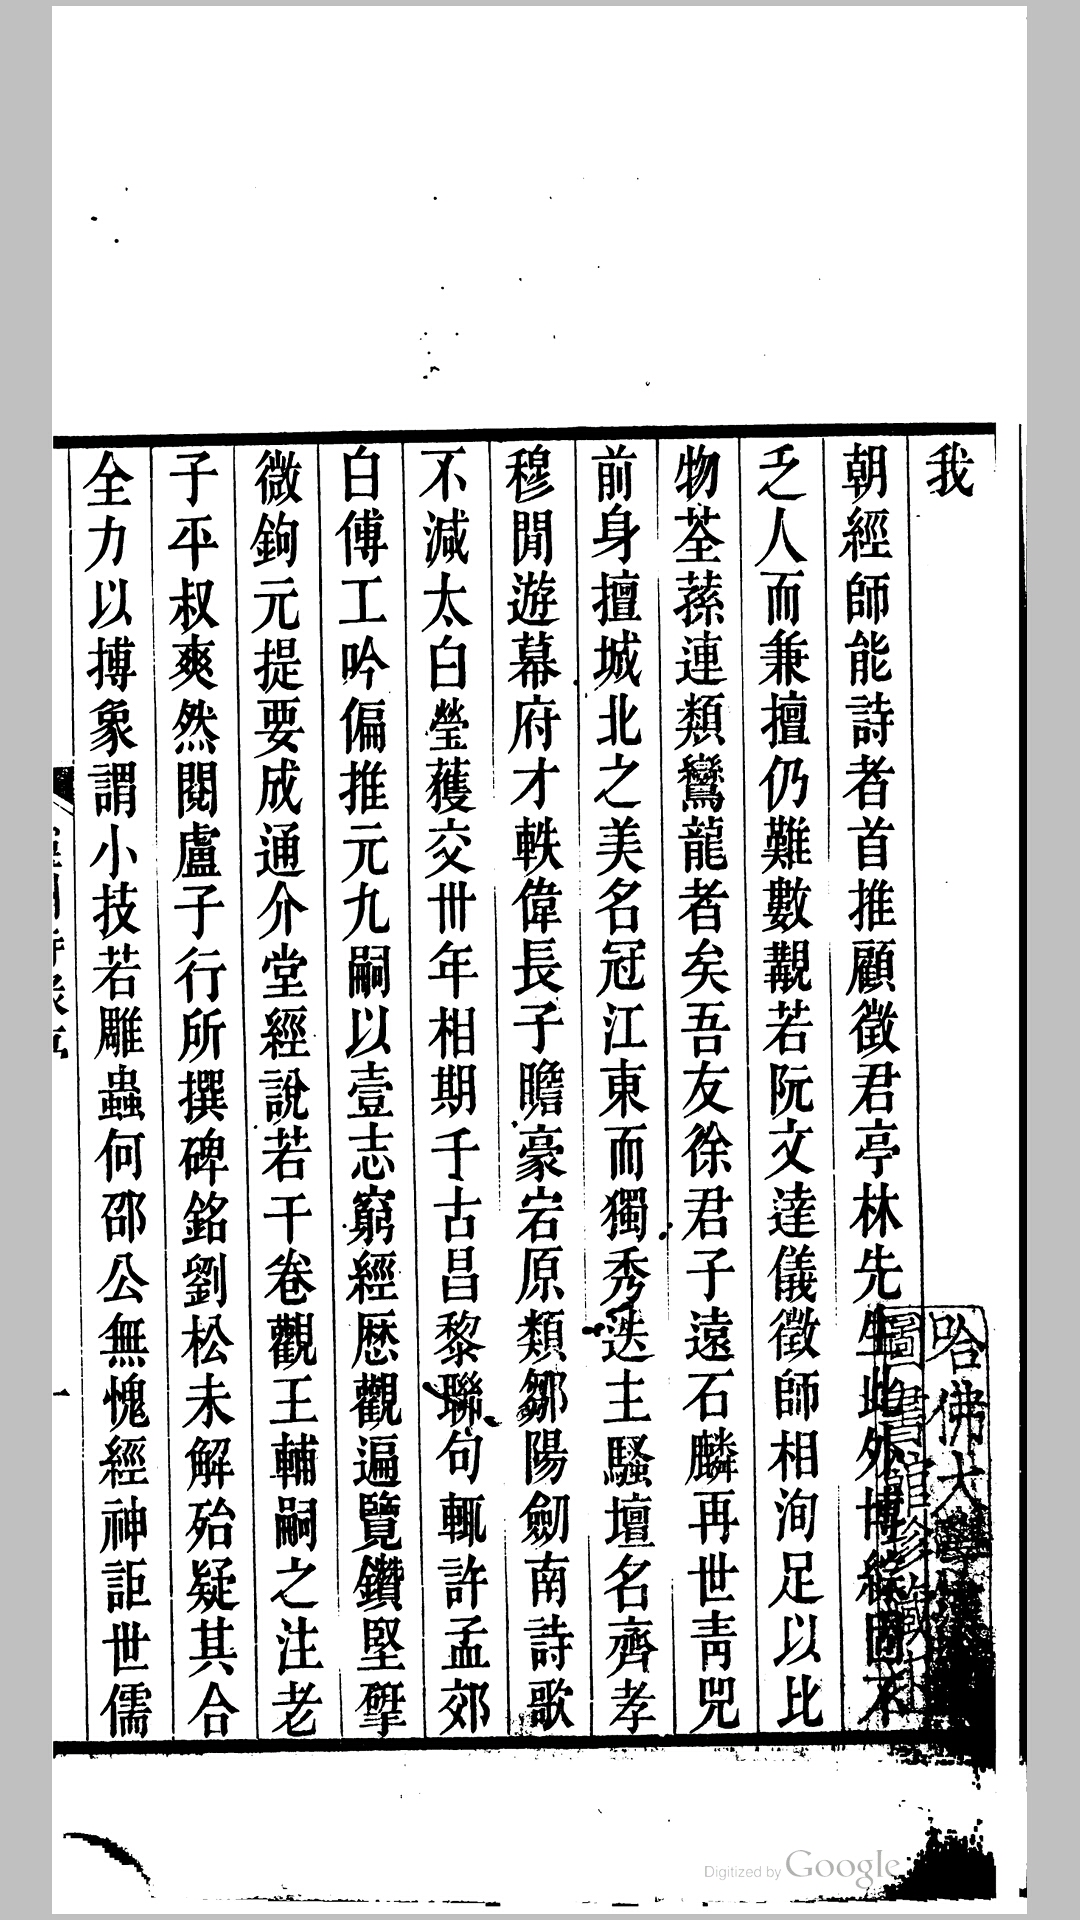 我
朝經師能詩者首推顧徵君亭林先生此外博綜固不
乏人而兼擅仍難數觀若阮文達儀徵師相洵足以比
物荃蓀連類鸞龍者矣吾友徐君子遠石麟再世青兕
前身擅城北之美名冠江東而獨秀迭主騷壇名齊孝
穆閒遊幕府才軼偉長子瞻豪宕原類鄒陽劒南詩歌
不減太白瑩蒦交卅年相期千古昌黎聯句輒許孟郊
白傅工吟偏推元九嗣以壹志窮經厯觀遍覽鑽堅揅
微鉤元提要成通介堂經說若干卷觀王輔嗣之注老
子平叔爽然閱盧子行所撰碑銘劉松未解殆疑其合
全力以搏象謂小技若雕蟲何邵公無愧經神詎世儒
哈佛大
圖書館珍藏
Digitized by Google